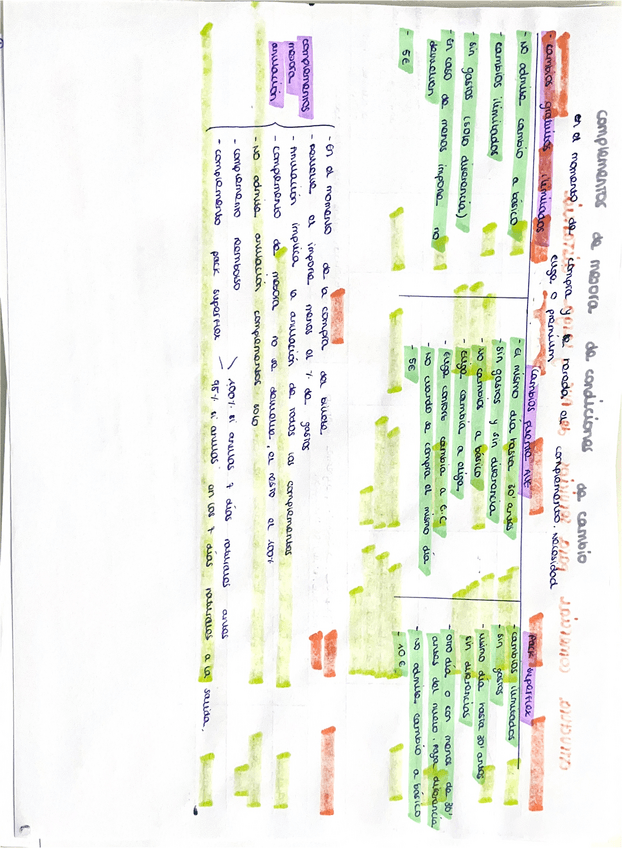 complementos de mejora de condiciones de cambio
en el momento de compra y la navidad el complemento. Necesidad
elige o premium
- cambios gratuitos ilimitados
- NO admite cambio a básico
- cambios ilimitados
- sin gastos (solo diferencia)
- en caso de menos importe no
devolución
- 5€
cambios puente AVE
- el mismo día hasta 30' antes
- sin gastos y sin diferencia
- NO cambios a básico
- elige cambia a elige
- elige confort cambia a E.C
- NO cuando se compra el mismo día
- 5€
pack superflex
- cambios ilimitados
- sin gastos
- mismo día hasta 30' antes
sin diferencias
- otro día o con menos de 30'
antes del nuevo. Paga diferencia
- NO admite cambio a básico
- 10€
complementos
mejora
anulación
- En el momento de la compra del billete
- Devuelve el importe menos el % de gastos
- Anulación implica la anulación de todos los complementos
- complemento de mejora no se devuelve, el resto al 100%
- NO admite anulación complementos solo
- complemento reembolso
- complemento pack superflex
100% si anulas 7 días naturales antes
95% si anulas en los 7 días naturales a la salida.